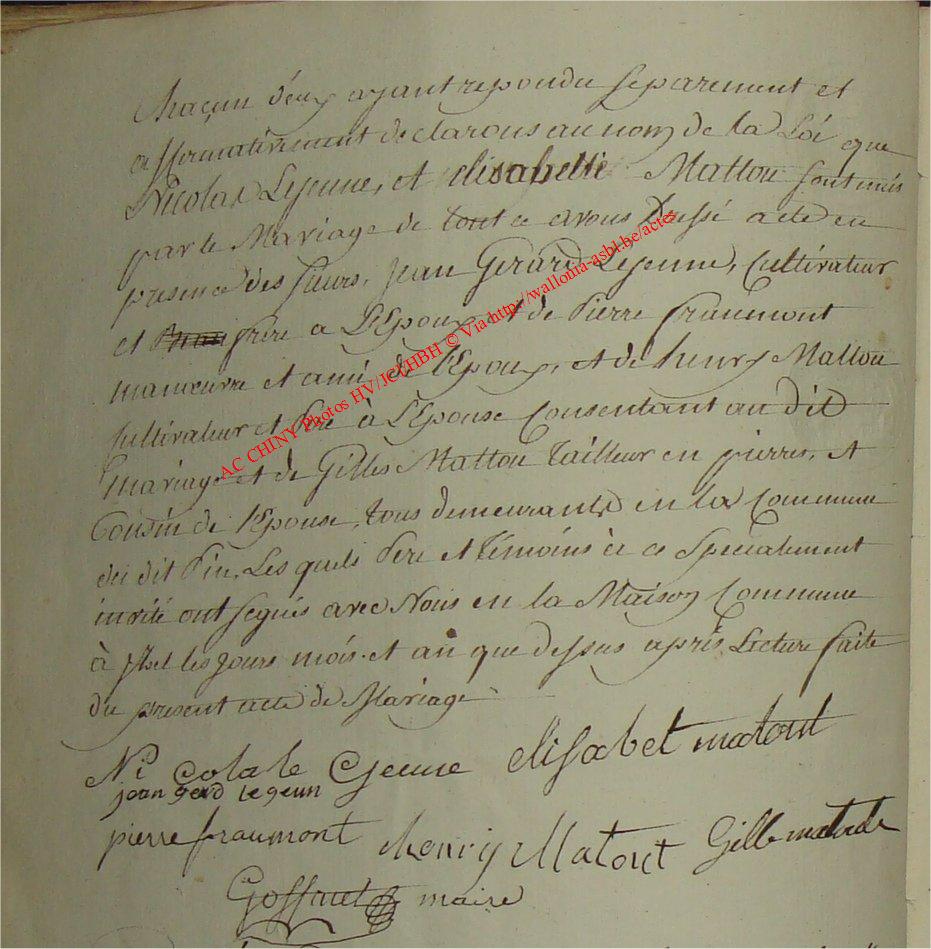 Chaqun d'eux ayant repondu separement et
affirmativement declarons au nom de la Loi que
Nicolas Lejeune, et elisabethe Mattou sont unis
par le Mariage de tout ce avons Dressé acte en
presence des sieurs, Jean Gerard Lejeune, Cultivateur
et frère a L'Epoux et de Pierre fraumont
manœuvre et ami de l'Epoux, et de henry Mattou
Cultivateur et Pere à L'Epouse Consentant au dit
Mariage et de Gilles Mattou Tailleur en pierres, et
Cousin de l'Epouse, tous demeurants en la Commune
du dit Pin, Les quels Pere et Témoins à ce Specialement
invité ont signés avec Nous en la Maison Commune
à les jours mois et an que dessus après Lecture faite
du present acte de Mariage
Ni cola le Jeune elisabet matout
jean gerd legeun
pierre fraumont henry Matout Gille
maire
AC CHINY Photos HV/JCl/HBH © Via http://wallonia-asbl.be/actes